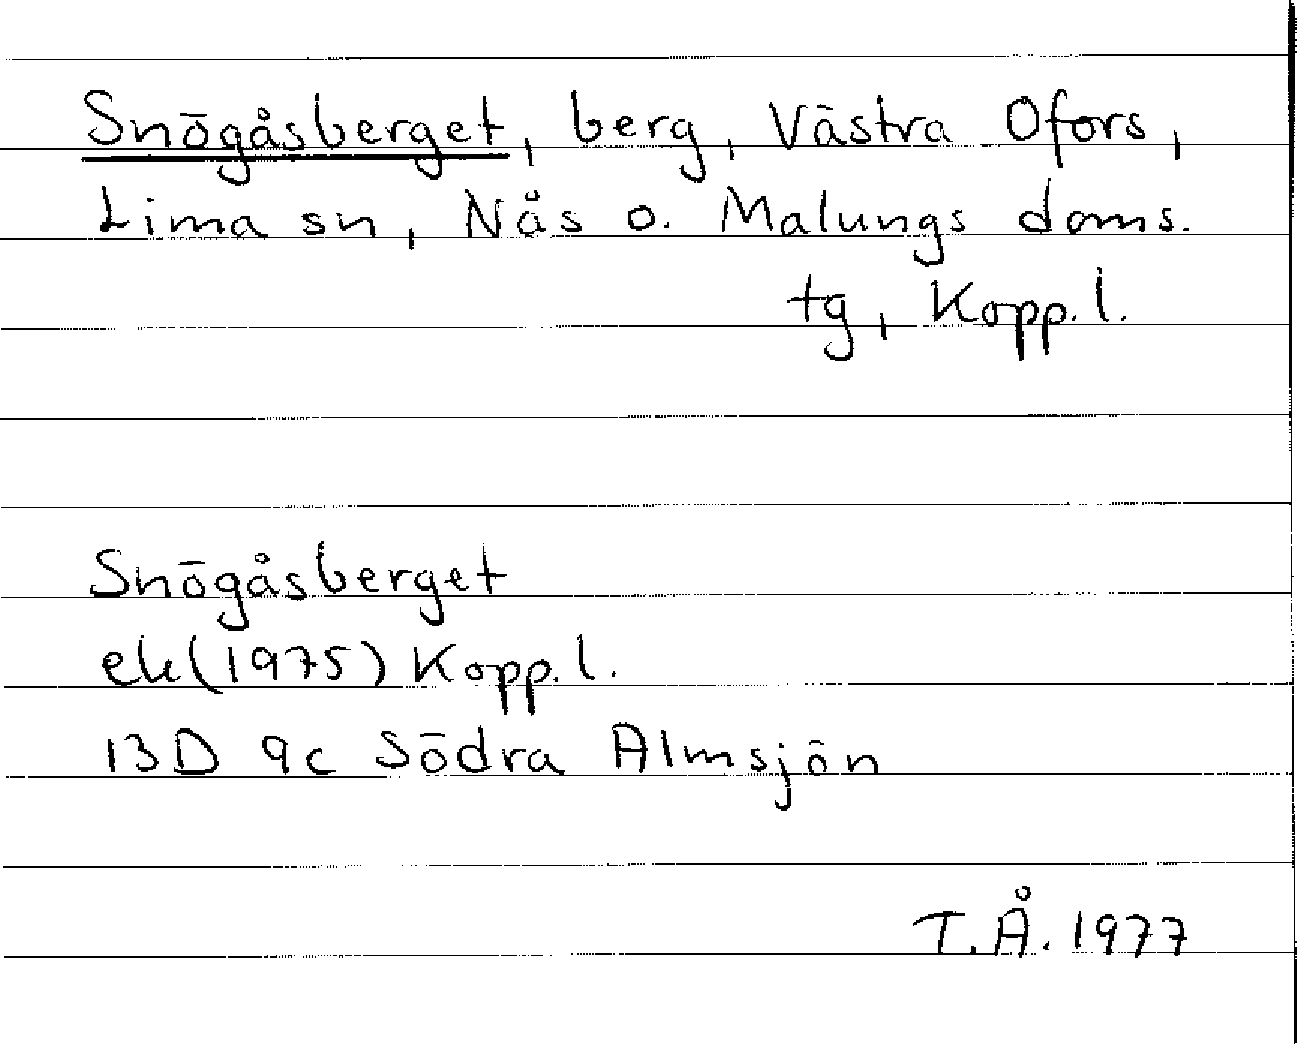 Snögåsberget, berg, Västra Ofors,
Lima sn, Nås o. Malungs doms.
tg, Kopp. l.
Snögåsberget
ek (1975) Kopp. l.
13D 9c Södra Almsjön
T. Å. 1977